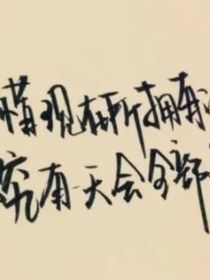 惜现在所拥有
究有一天会全部